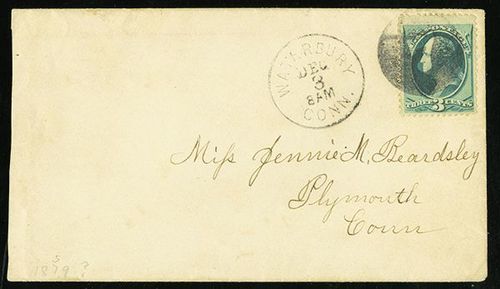 WATERBURY
DEC
3
8AM
CONN.
U.S. POSTAGE
THREE 3 CENTS
Miss Jennie M. Beardsley
Plymouth
Conn
5
1879?